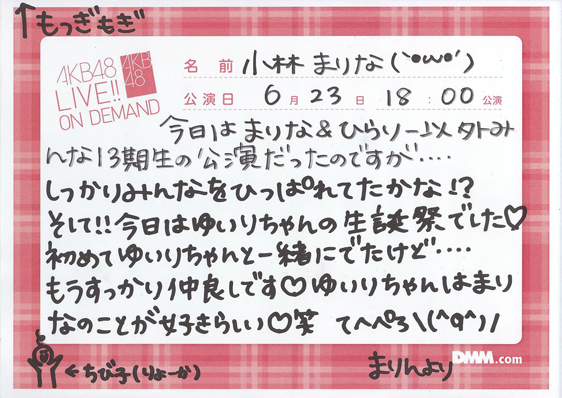 ↑もっぎもぎ
AKB48
LIVE!!
ON DEMAND
AKB
48
名前 小林 まりな(`•ω•´)
公演日 6月23日 18:00公演
今日は まりな&ひらりー以外み
んな13期生の公演だったのですが‥‥
しっかりみんなをひっぱれてたかな!?
そして!!今日はゆいりちゃんの生誕祭でした♡
初めてゆいりちゃんと一緒にでたけど‥‥
もうすっかり仲良しです♡ゆいりちゃんはまり
なのことが好きらしい♡笑 てへぺろ\(^q^)/
←ちび子(りょーか)
まりんより
DMM.com